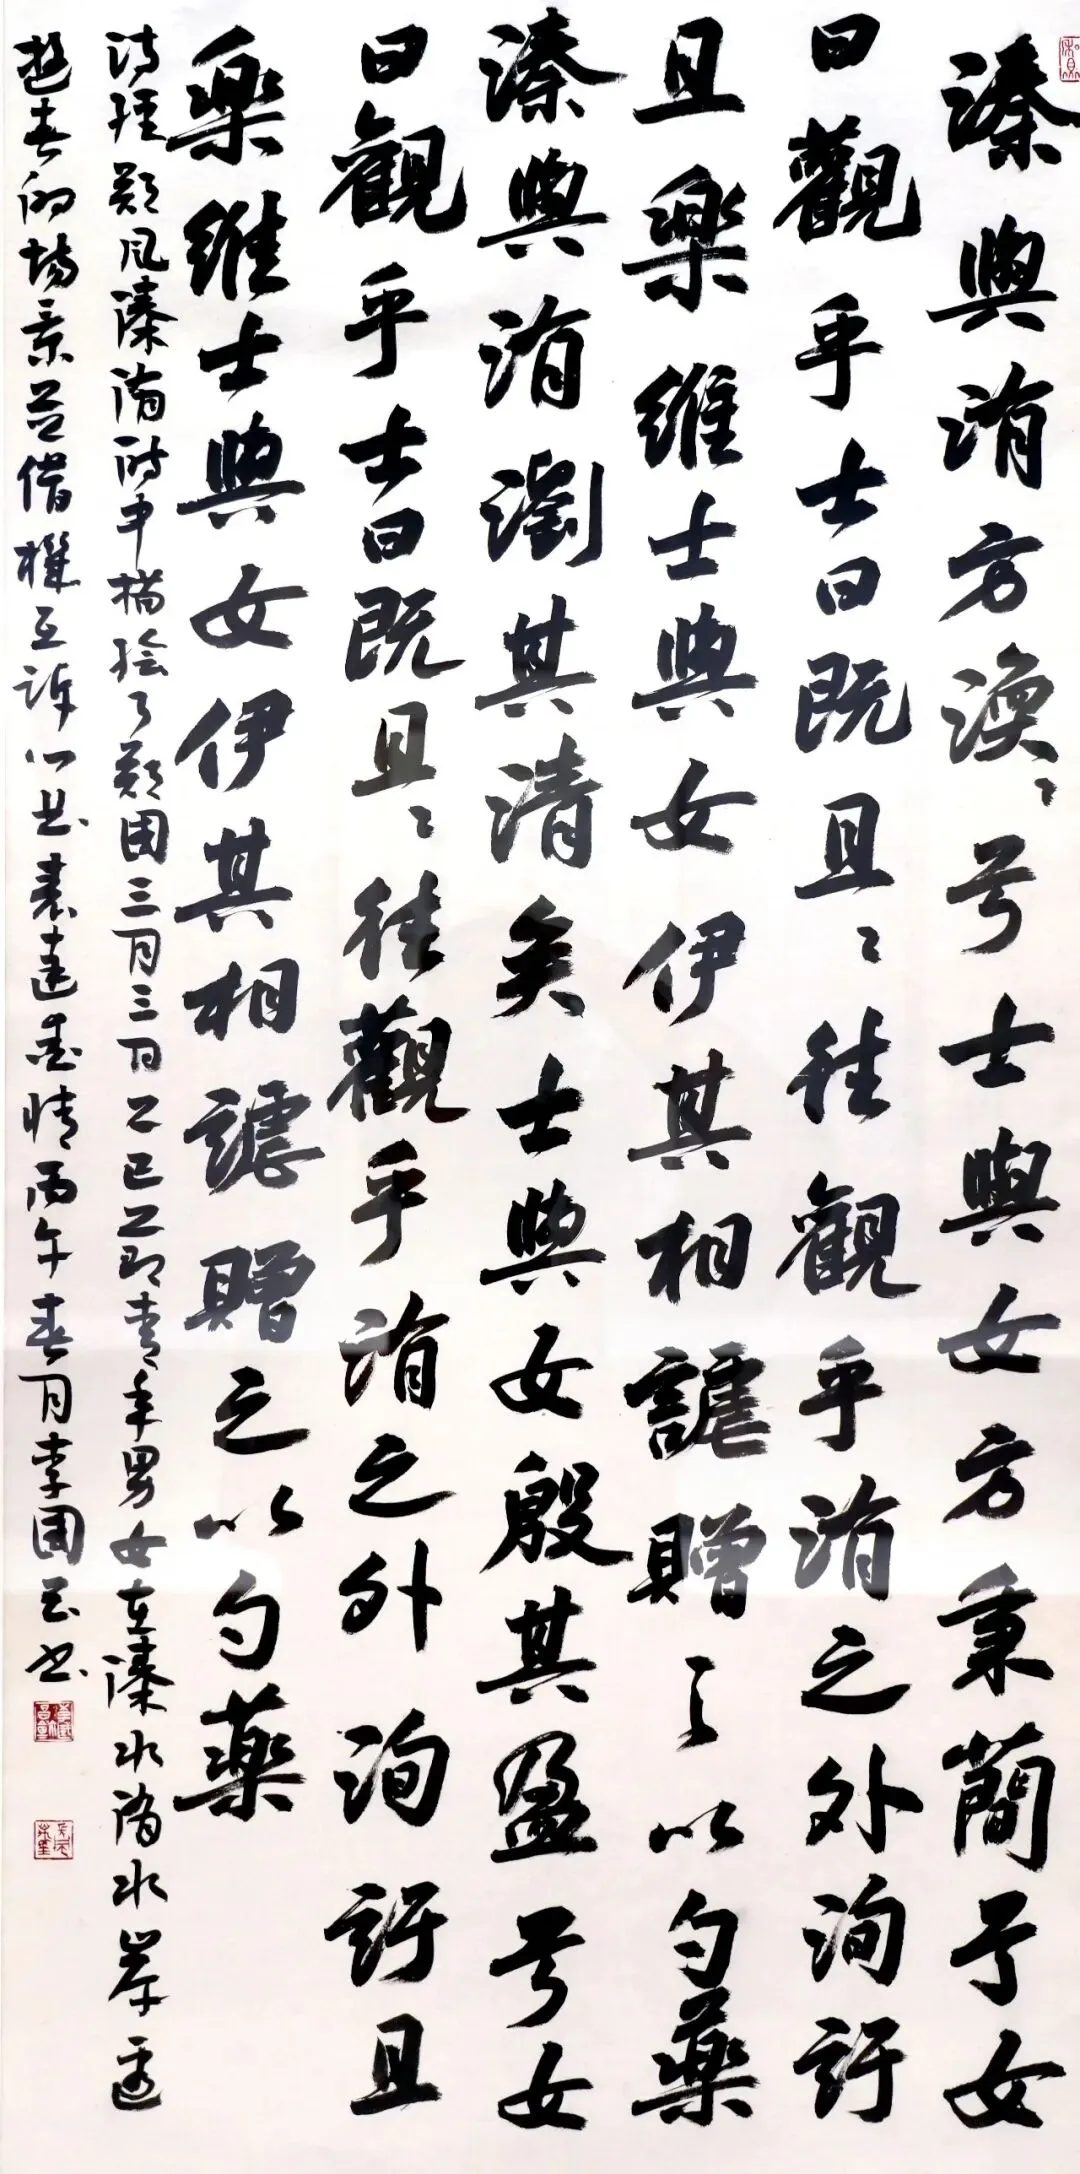 溱與洧方渙〻兮士與女方秉蕑兮女
曰觀乎士曰既且〻往觀乎洧之外洵訏
且樂維士與女伊其相謔贈之以勺藥
溱與洧瀏其清矣士與女殷其盈兮女
曰觀乎士曰既且〻往觀乎洧之外洵訏且
樂維士與女伊其相謔贈之以勺藥
诗经郑风溱洧诗中描绘了郑国三月三日上巳节青年男女在溱水洧水岸边
遊春的场景并借機互诉心思表達爱情丙午春月李国玉书